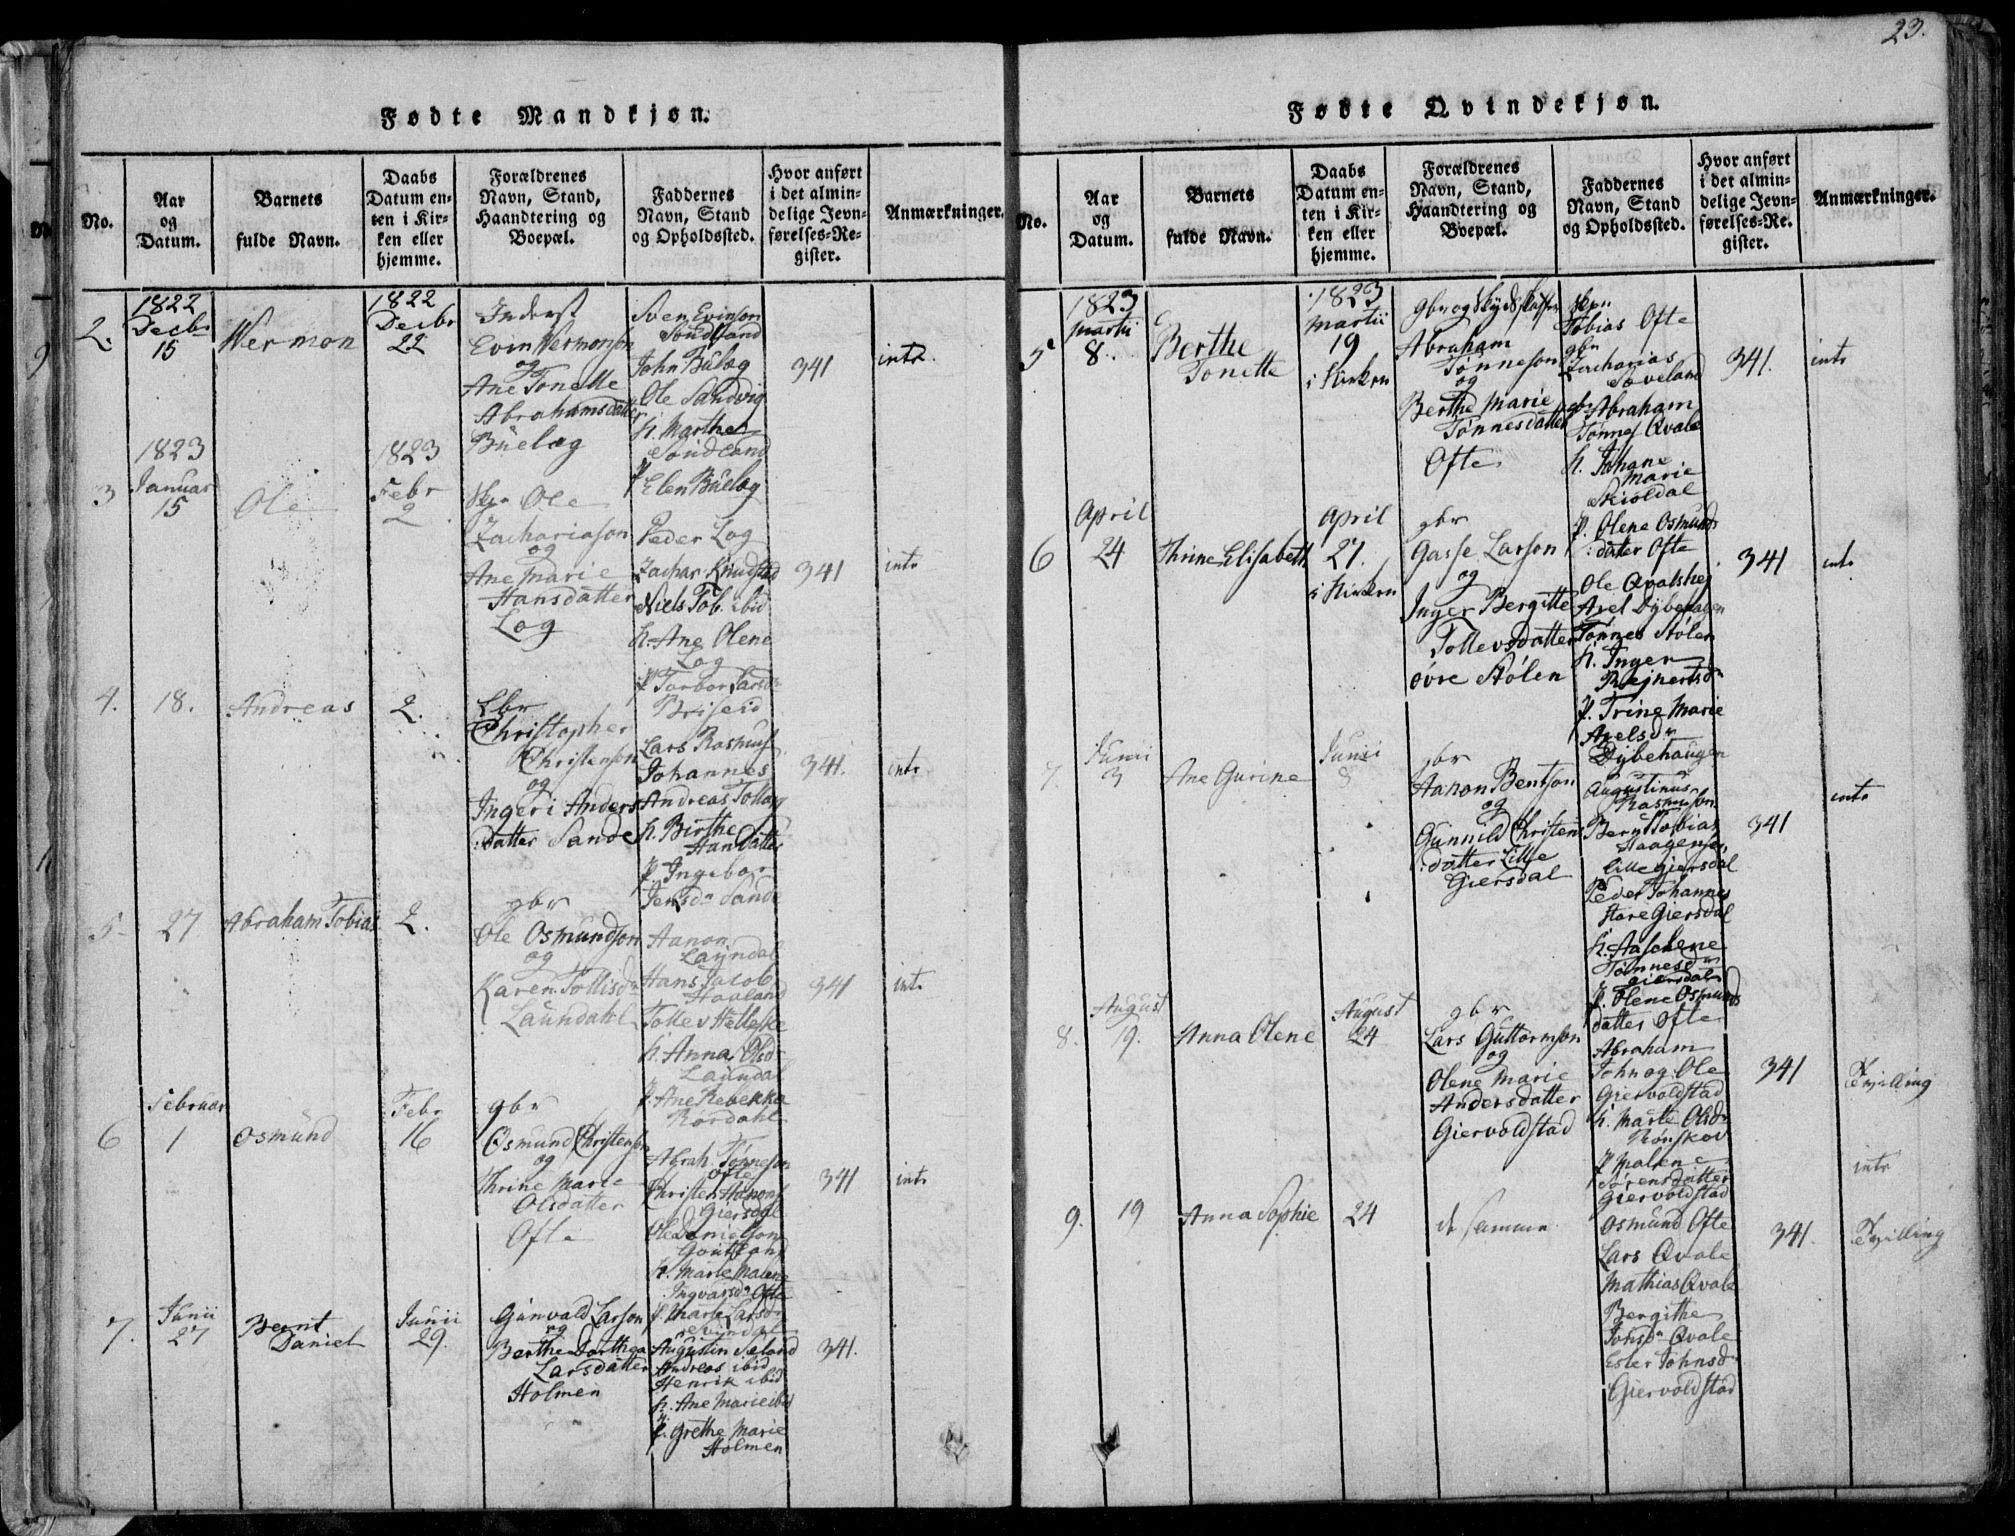 23.
Fødte Mandkjøn.
No.
Aar og Datum.
Barnets fulde Navn.
Daabs Datum enten i Kirken eller hjemme.
Forældrenes Navn, Stand, Haandtering og Boepæl.
Faddernes Navn, Stand og Opholdssted.
Hvor anført i det almindelige Jevnførelses-Register.
Anmærkninger.
2.
1822
Decbr
15
Wermon
1822
Decbr
22
Inderst
Evin Wermonson
og
Ane Tonette
Abrahamsdatter
Büelog
Sven Evinson
Sondland
John Büelog
Ole Sandvig
K. Marthe
Sondland
P. Elen Büelog
341
intr
3
1823
Januar
15
Ole
1823
Febr
2
Ole
Zachariason
og
Ane Marie
Hansdatter
Log
Peder Log
Zachar. Knudstad
Niels Tob. ibid
K. Ane Olene
Log
P. Torbor Larsdr
Briseid
341
intr
4.
18.
Andreas
2.
Christopher
Christenson
og
Ingeri Anders
datter Sande
Lars Rasmus
Johannes
Andreas
K. Birthe
Hansdatter
P. Ingebor
Jensdr Sande
341.
intr
5
27
Abraham Tobias
2.
gbr
Ole Osmundson
og
Karen Tollisdr
Laundahl
Aanon
Laundal
Hans Jacob
Hovland
Tollev Helleske
K. Anna Olsdr
Laundal
P. Ane Rebekka
Rørdahl
341
intr
6
Februar
1
Osmund
Febr
16
gbr
Osmund Christenson
og
Thrine Marie
Olsdatter
Ofte
Abrah. Tonneson
Ofte
Christen Aanons
Giersdal
Ole Danielson
K. Marie Malene
Ingvarsdr Ofte
P. Marte Larsdr
341
intr
7.
Junii
27
Bernt
Daniel
Junii
29.
Gunvald Larson
og
Berthe Dorthea
Larsdatter
Holmen
Augustin Seland
Andreas ibid
Henrik ibid
K. Ane Marie ibid
P. Grethe Marie
Holmen
341.
Fødte Qvindekjøn.
No.
Aar og Datum.
Barnets fulde Navn.
Daabs Datum enten i Kirken eller hjemme.
Forældrenes Navn, Stand, Haandtering og Boepæl.
Faddernes Navn, Stand og Opholdssted.
Hvor anført i det almindelige Jevnførelses-Register.
Anmærkninger.
5
1823
Martii
8.
Berthe
Tonette
1823
Martii
19
i Kirken
gbr og Skydsskaffer
Abraham
Tønneson
og
Berthe Marie
Tønnesdatter
Ofte
Tobias Ofte
Zacharias
Soveland
Abraham
Tønnes Qvale
K. Johane
Marie
Skioldal
P. Olene Osmunds
datter Ofte
341.
intr
6
April
24
Thrine Elisabeth
April
27.
i Kirken
gbr
Gasse Larson
og
Inger Bergitte
Tollevsdatter
øvre Stølen
Ole Qvalshej
Axel Dybehaugen
Tønnes Stølen
K. Inger
Rejnertsdr
P. Trine Marie
Axelsdr
Dybehaugen
341
intr
7.
Junii
3
Ane Gurine
Junii
8
gbr
Aanon Bentson
og
Gunnild Christens
datter Lille
Giersdal
Augustinus
Rasmuson
Bernt Tobias
Haagens
Lille Giersdal
Peder Johannes
Store Giersdal
K. Aaselene
Tønnesdr
Giersdal
P. Olene Osmunds
datter Ofte
341
intr
8.
August
19.
Anna Olene
August
24
gbr
Lars Guttormson
og
Olene Marie
Andersdatter
Giervoldstad
Abraham
John og Ole
Giervoldstad
K. Marte Olsdr
Rønskov
P. Malene
Sørensdatter
Giervoldstad
341
Tvilling
intr
9.
19
Anna Sophie
24
de samme
Osmund Ofte
Lars Qvale
Mathias Qvale
Bergithe
Johsdr Qvale
Ester Johnsdr
Giervoldstad
341.
Tvilling